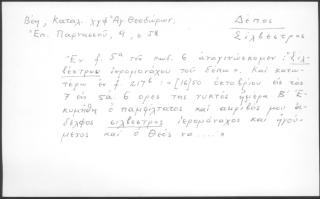 Βέη, Καταλ. χγφ Ἁγ. Θεοδώρων.
Δέπος
Ἐπ. Παρνασσοῦ, 9, σ 58
Σίλβεστρος
Ἐν f. 5α τοῦ κωδ. 6 ἀναγινώσκομεν: Σιλ
βέστρου ἱερομονάχου τοῦ δέπο". Καὶ κατω-
τέρω ἐν f 217b :- [16]50 ὀκτοβρίου εἰς τὰς
7 εἰς 5α 6 ὁρες τῆς νυκτὸς ἡμέρα Β΄ Ἐ-
κυμήθη ὁ παμφίλτατος καὶ ἀκριβός μου ἀ-
δελφος σίλβεστρος ἱερομόναχος καὶ ἡγού-
μενος καὶ ὁ Θεὸς να .... "